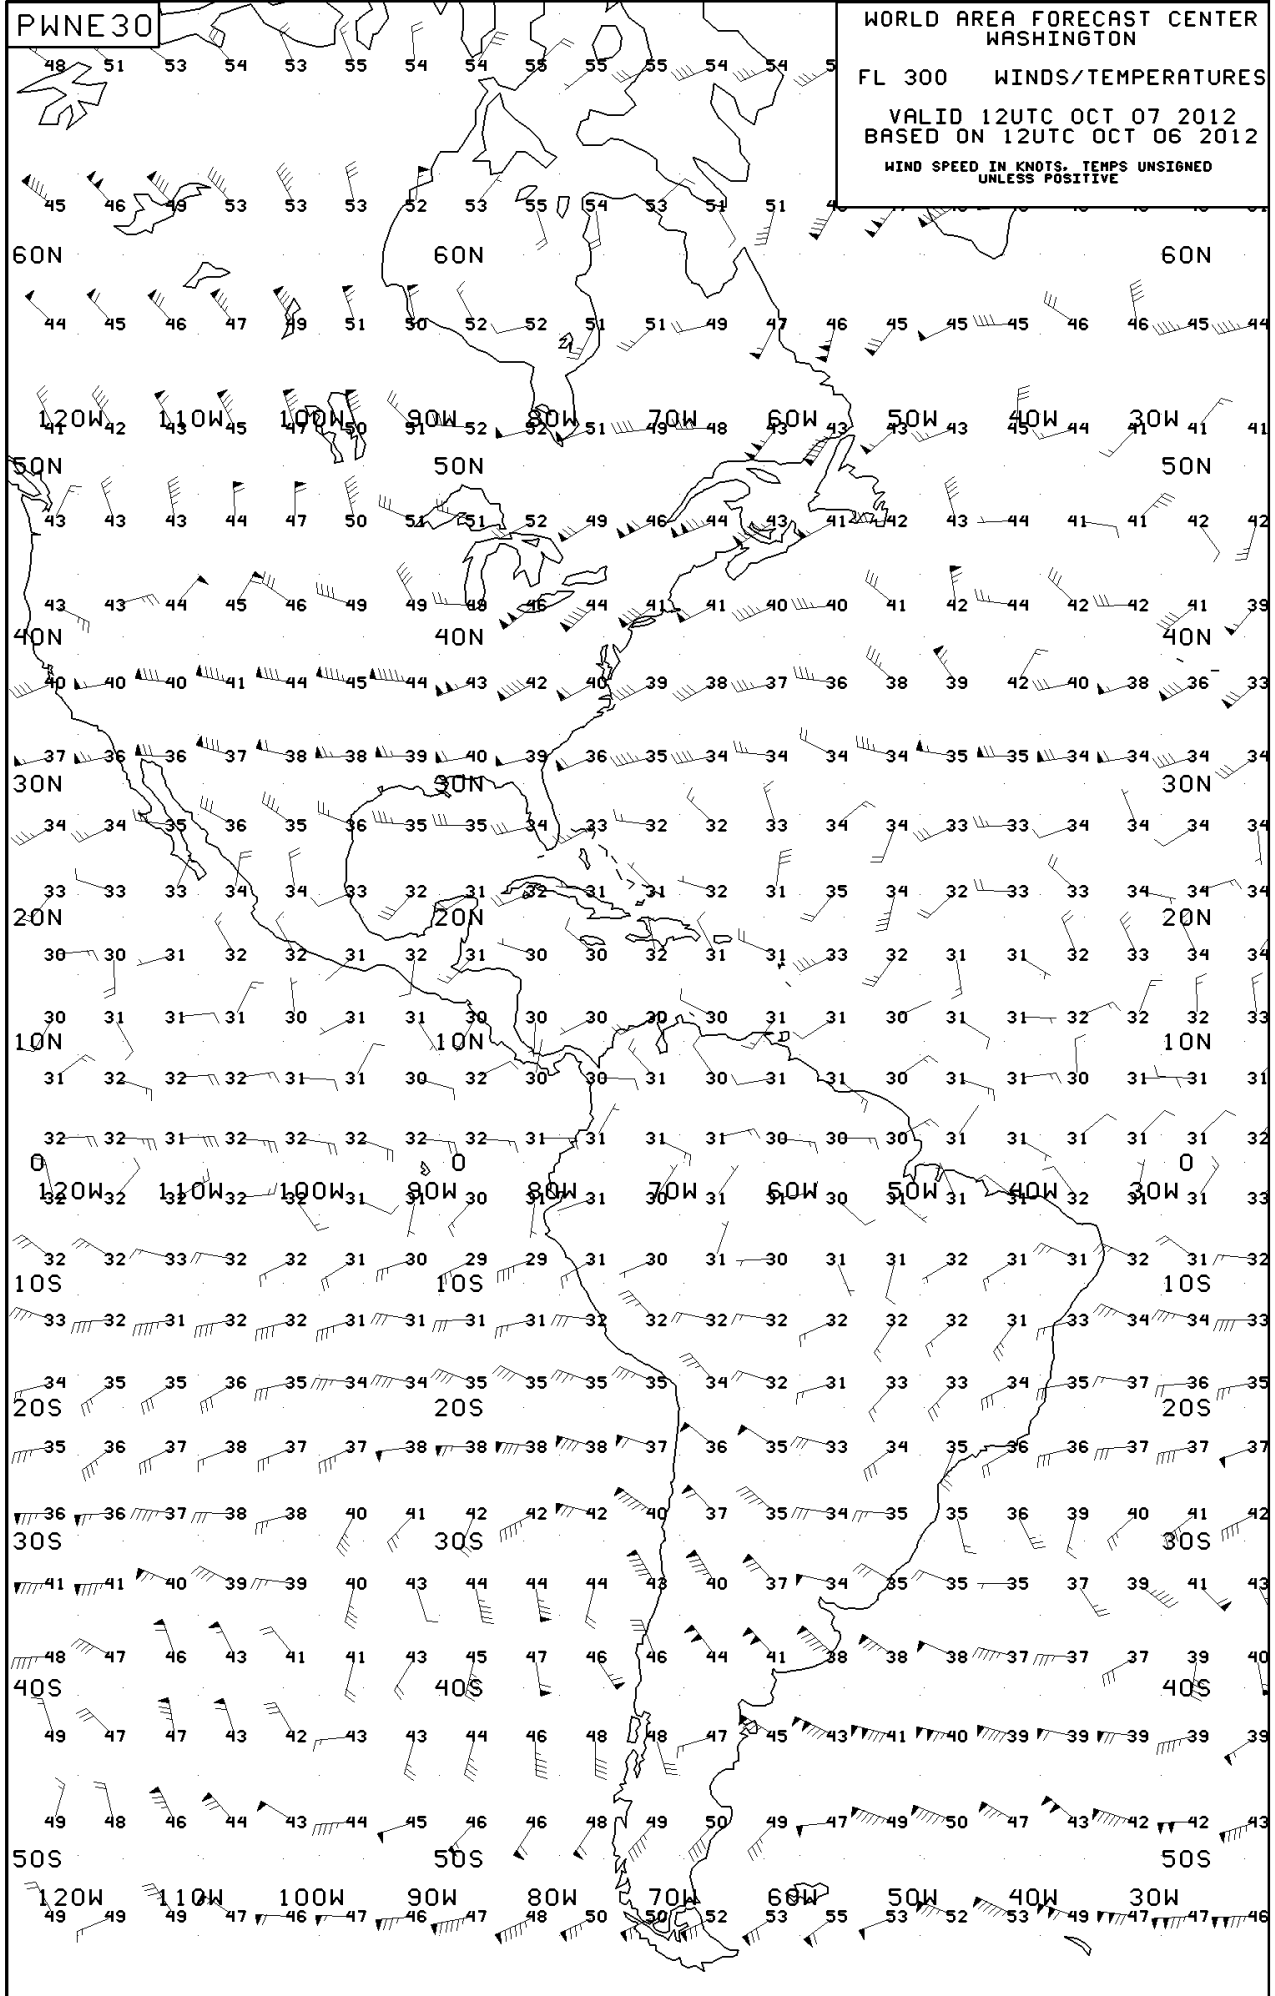 PWNE30
WORLD AREA FORECAST CENTER
WASHINGTON
FL 300 WINDS/TEMPERATURES
VALID 12UTC OCT 07 2012
BASED ON 12UTC OCT 06 2012
WIND SPEED IN KNOTS, TEMPS UNSIGNED
UNLESS POSITIVE
48 51 53 54 53 55 54 54 55 55 55 54 54
45 46 49 53 53 53 52 53 55 54 53 51 51
60N 60N 60N
44 45 46 47 49 51 50 52 52 51 51 49 47 46 45 45 45 46 46 45 44
120W 110W 100W 90W 80W 70W 60W 50W 40W 30W
41 42 43 45 47 50 51 52 52 51 49 48 43 43 43 43 45 44 41 41 41
50N 50N 50N
43 43 43 44 47 50 51 51 52 49 46 44 43 41 42 43 44 41 41 42 42
43 43 44 45 46 49 49 49 46 44 41 41 40 40 41 42 44 42 42 41 39
40N 40N 40N
40 40 40 41 44 45 44 43 42 40 39 38 37 36 38 39 42 40 38 36 33
37 36 36 37 38 38 39 40 39 36 35 34 34 34 34 35 35 34 34 34 34
30N 30N 30N
34 34 35 36 35 36 35 35 34 33 32 32 33 34 34 33 33 34 34 34 34
33 33 33 34 34 33 32 31 32 31 31 32 31 35 34 32 33 33 34 34 34
20N 20N 20N
30 30 31 32 32 31 32 31 30 30 32 31 31 33 32 31 31 32 33 34 34
30 31 31 31 30 31 31 30 30 30 30 30 31 31 30 31 31 32 32 32 33
10N 10N 10N
31 32 32 32 31 31 30 32 30 30 31 30 31 31 30 31 31 30 31 31 31
32 32 31 32 32 32 32 32 31 31 31 31 30 30 30 31 31 31 31 31 32
0 0 0
120W 110W 100W 90W 80W 70W 60W 50W 40W 30W
32 32 32 32 32 31 31 30 31 31 30 31 31 30 31 31 31 32 31 31 33
32 32 33 32 32 31 30 29 29 31 30 31 30 31 31 32 31 31 32 31 32
10S 10S 10S
33 32 31 32 32 31 31 31 31 32 32 32 32 32 32 32 31 33 34 34 33
34 35 35 36 35 34 34 35 35 35 35 34 32 31 33 33 34 35 37 36 35
20S 20S 20S
35 36 37 38 37 37 38 38 38 38 37 36 35 33 34 35 36 36 37 37 37
36 36 37 38 38 40 41 42 42 42 40 37 35 34 35 35 36 39 40 41 42
30S 30S 30S
41 41 40 39 39 40 43 44 44 44 43 40 37 34 35 35 35 37 39 41 43
48 47 46 43 41 41 43 45 47 46 46 44 41 38 38 38 37 37 37 39 40
40S 40S 40S
49 47 47 43 42 43 43 44 46 48 48 47 45 43 41 40 39 39 39 39 39
49 48 46 44 43 44 45 46 46 48 49 50 49 47 49 50 47 43 42 42 43
50S 50S 50S
120W 110W 100W 90W 80W 70W 60W 50W 40W 30W
49 49 49 47 46 47 46 47 48 50 50 52 53 55 53 52 53 49 47 47 46